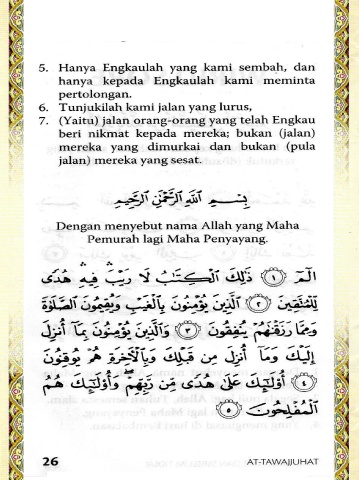 5. Hanya Engkaulah yang kami sembah, dan
hanya kepada Engkaulah kami meminta
pertolongan.
6. Tunjukilah kami jalan yang lurus,
7. (Yaitu) jalan orang-orang yang telah Engkau
beri nikmat kepada mereka; bukan (jalan)
mereka yang dimurkai dan bukan (pula
jalan) mereka yang sesat.
بِسْمِ اللَّهِ الرَّحْمَٰنِ الرَّحِيمِ
Dengan menyebut nama Allah yang Maha
Pemurah lagi Maha Penyayang.
الٓمٓ ﴿١﴾ ذَٰلِكَ الْكِتَابُ لَا رَيْبَ ۛ فِيهِ ۛ هُدًى
لِلْمُتَّقِينَ ﴿٢﴾ الَّذِينَ يُؤْمِنُونَ بِالْغَيْبِ وَيُقِيمُونَ الصَّلَوٰةَ
وَمِمَّا رَزَقْنَاهُمْ يُنْفِقُونَ ﴿٣﴾ وَالَّذِينَ يُؤْمِنُونَ بِمَا أُنْزِلَ
إِلَيْكَ وَمَا أُنْزِلَ مِنْ قَبْلِكَ وَبِالْآخِرَةِ هُمْ يُوقِنُونَ
﴿٤﴾ أُولَٰئِكَ عَلَىٰ هُدًى مِنْ رَبِّهِمْ ۖ وَأُولَٰئِكَ هُمُ
الْمُفْلِحُونَ ﴿٥﴾
26 AT-TAWAJJUHAT